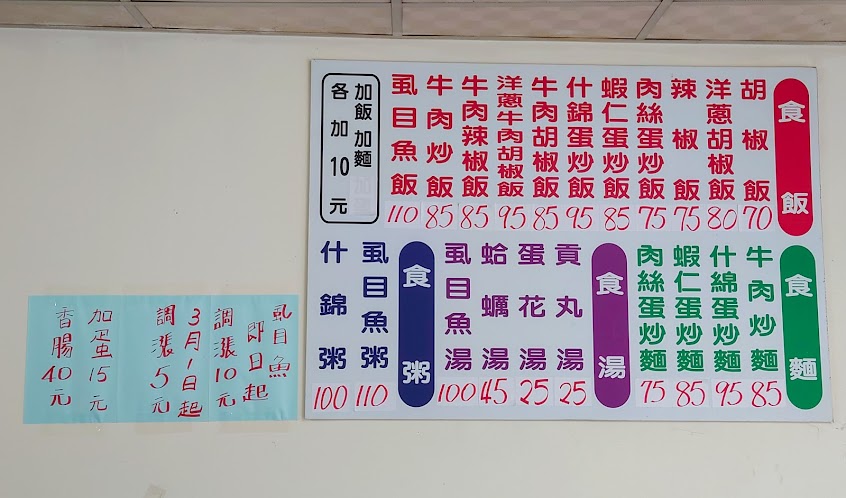 食飯
胡椒飯 70
洋蔥胡椒飯 80
辣椒飯 75
肉絲蛋炒飯 75
蝦仁蛋炒飯 85
什錦蛋炒飯 95
牛肉胡椒飯 85
洋蔥牛肉胡椒飯 95
牛肉辣椒飯 85
牛肉炒飯 85
虱目魚飯 110
加飯 加麵 加蛋
各加10元
食麵
牛肉炒麵 85
什綿蛋炒麵 95
蝦仁蛋炒麵 85
肉絲蛋炒麵 75
食湯
貢丸湯 25
蛋花湯 25
蛤蠣湯 45
虱目魚湯 100
食粥
虱目魚粥 110
什錦粥 100
虱目魚
即日起
調漲10元
3月1日起
調漲5元
加蛋15元
香腸40元